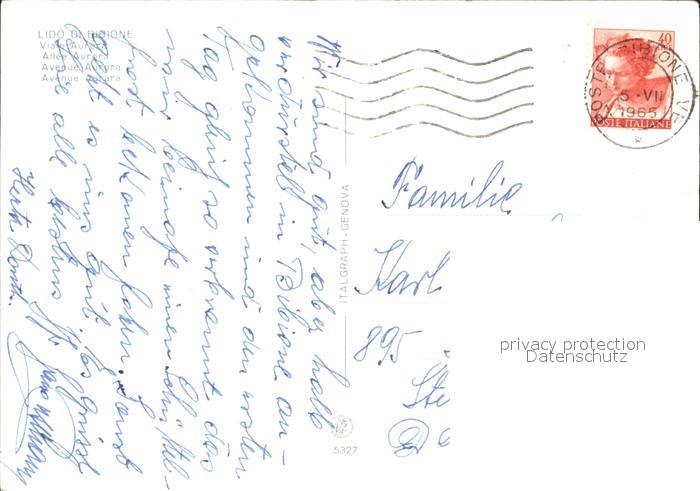 LIDO DI BIBIONE
Viale Aurora
Allée Aurora
Avenue Aurora
Avenue Aurora
Wir sind gut, aber halb
verdurstet in Bibione an-
gekommen und den ersten
Tag gleich so verbrannt das
wir beinahe einen
frost bekomen haben. Sonst
geht es uns gut. Es grüsst
Sie alle
Herta
ITALGRAPH - GENOVA
5327
40
POSTE BIBIONE VE
5 -VII
1965
POSTE ITALIANE
Familie
Karl
895
Ste
privacy protection
Datenschutz